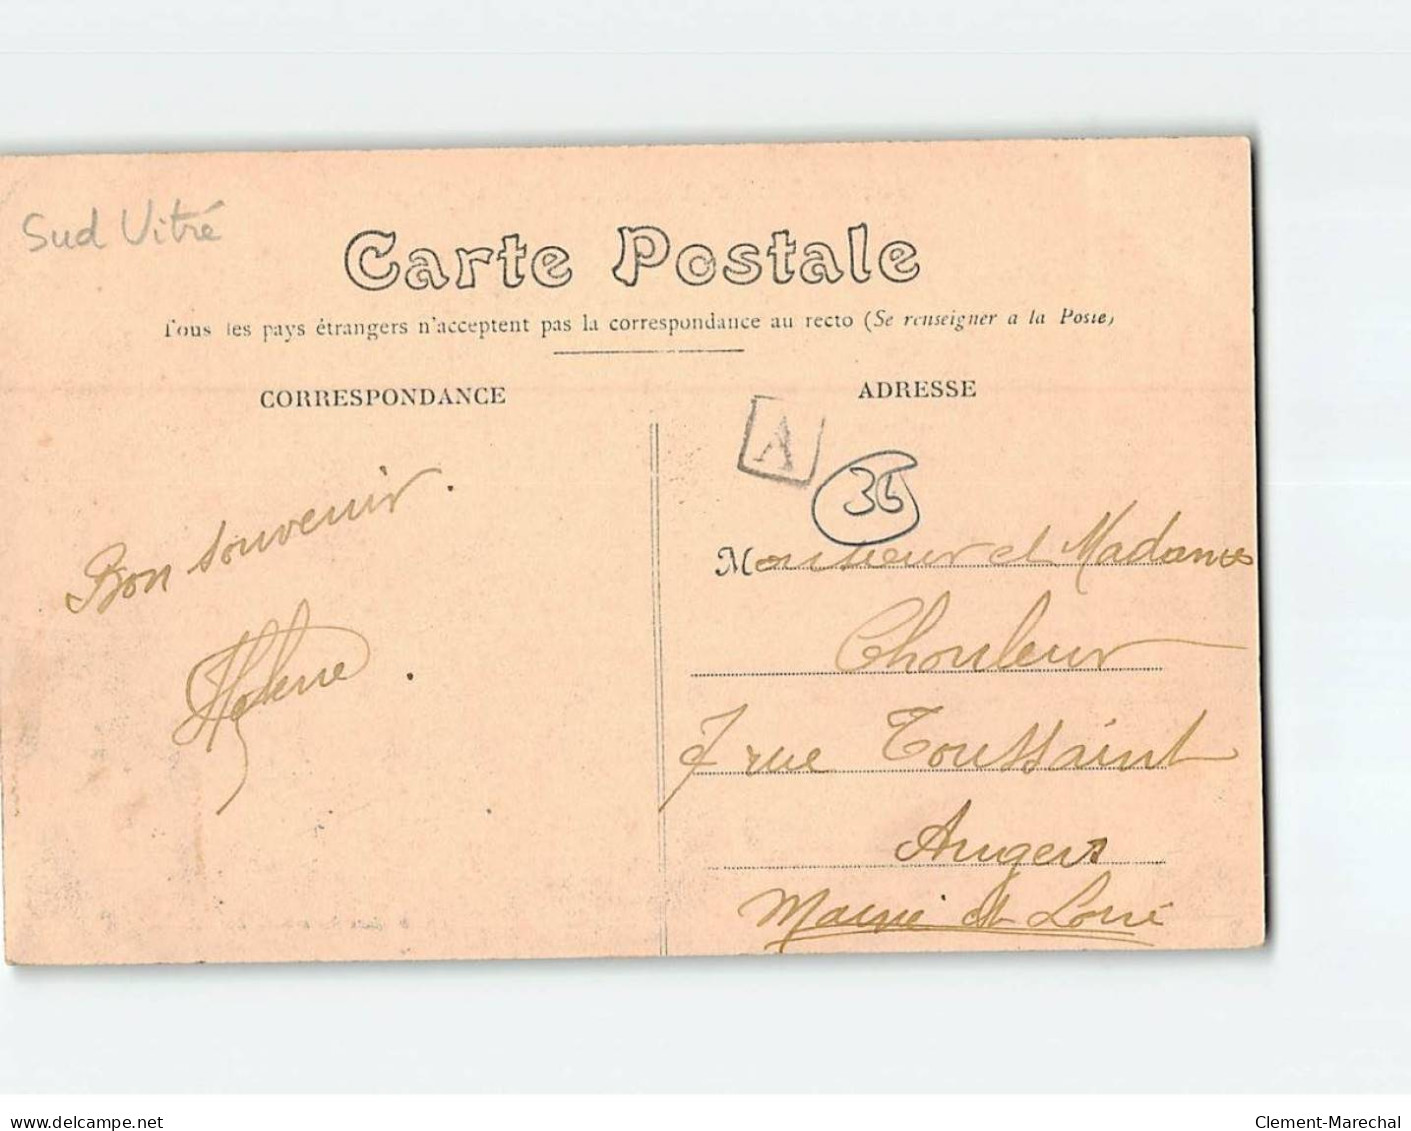 Sud Vitré
Carte Postale
Tous les pays étrangers n'acceptent pas la correspondance au recto (Se renseigner a la Poste)
CORRESPONDANCE
ADRESSE
A
35
Bon souvenir.
Hélène
Monsieur et Madame
Chouleur
7 rue Toussaint
Angers
Maine et Loire
delcampe.net
Clement-Marechal